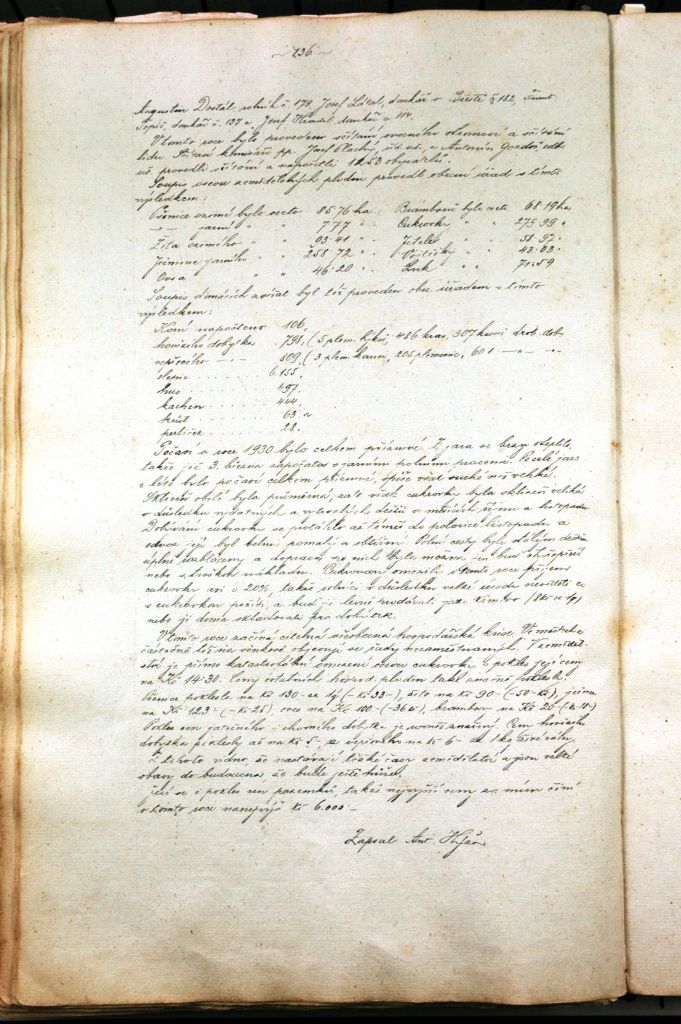 ~ 136 ~
Augustin Dostál, rolník č. 174, Josef Látal, domkář v č. 182,
domkář č. 137 a Josef domkář č. 114.
V tomto roce bylo provedeno sčítání ovocného stromoví a sčítání
lidu. Sčítací komisaři pp. Josef Plachý, a Antonín
provedli sčítání a napočetli 1253 obyvatelů.
Soupis osevu zemědělských plodin provedl obecní úřad s tímto
výsledkem:
Pšenice ozimé bylo oseto 85.76 ha. Bramborů bylo oseto 68.19 ha
" jarní " " 7.77 " Cukrovky " " 275.99 "
Žita ozimého " " 93.41 " Jetele " " 58.97 "
Ječmene jarního " " 258.72 " Vojtěšky " " 43.03 "
Ovsa " " 46.20 " Luk " " 71.59
Soupis domácích zvířat byl též proveden obec. úřadem s tímto
výsledkem:
Koní napočteno 106,
hovězího dobytka 798, (5 plem. býků, 486 krav, 307 kusů drob. dob.
vepřového 809 (3 plem. kanci, 205 plemenic, 601
slepic 6.155.
hus 497.
kachen 444.
krůt 63
perliček 28.
Počasí v roce 1930 bylo celkem příznivé. Z jara se brzy oteplilo,
takže již 3. března započato s jarními polními pracemi. Po celé jaro
i léto bylo počasí celkem příznivé, spíše více suché než vlhké.
Sklizeň obilí byla průměrná, zato však cukrovky byla sklizeň veliká
v důsledku vydatných a vytrvalých dešťů v měsících říjnu a listopadu.
Dobývání cukrovky se protáhlo až téměř do polovice listopadu a
odvoz její byl velmi pomalý a obtížný. Polní cesty byly stálým deštěm
úplně rozbláceny a doprava po nich byla možná jen buď čtyřspřeží
nebo s trochou nákladu. Cukrovary omezily v tomto roce příjem
cukrovky asi o 20%, takže rolníci v důsledku velké úrody nevěděli co
s cukrovkou počíti, a buď ji levně prodávali jako krmivo (8 Kč za 1q)
nebo ji doma skladovali pro dobytek.
V tomto roce začíná citelná všeobecná hospodářská krise. Ve městech a
částečně též na venkově objevují se řady nezaměstnaných. V zemědělství
je přímo katastrofální omezení osevu cukrovky a pokles její ceny
na Kč 14.30. Ceny ostatních hospod. plodin také značně poklesly.
Pšenice poklesla na Kč 130.– za 1q (– Kč 33–), žito na Kč 90.– (–50– Kč), ječmen
na Kč 123.– (–Kč 25), oves na Kč 100.– (–36 Kč), brambor na Kč 26.–
Pokles cen jatečného i chovného dobytka je rovněž značný. Ceny hovězího
dobytka poklesly až na Kč 5.– za vepřového na Kč 6.– za 1 kg živé váhy.
Z tohoto vidno, že nastávají těžké časy zemědělství a jsou veliké
obavy do budoucna, že bude ještě hůře.
Jeví se i pokles cen pozemků, takže nejvyšší ceny za míru činí
v tomto roce nanejvýš Kč 6.000.–
Zapsal Ant.